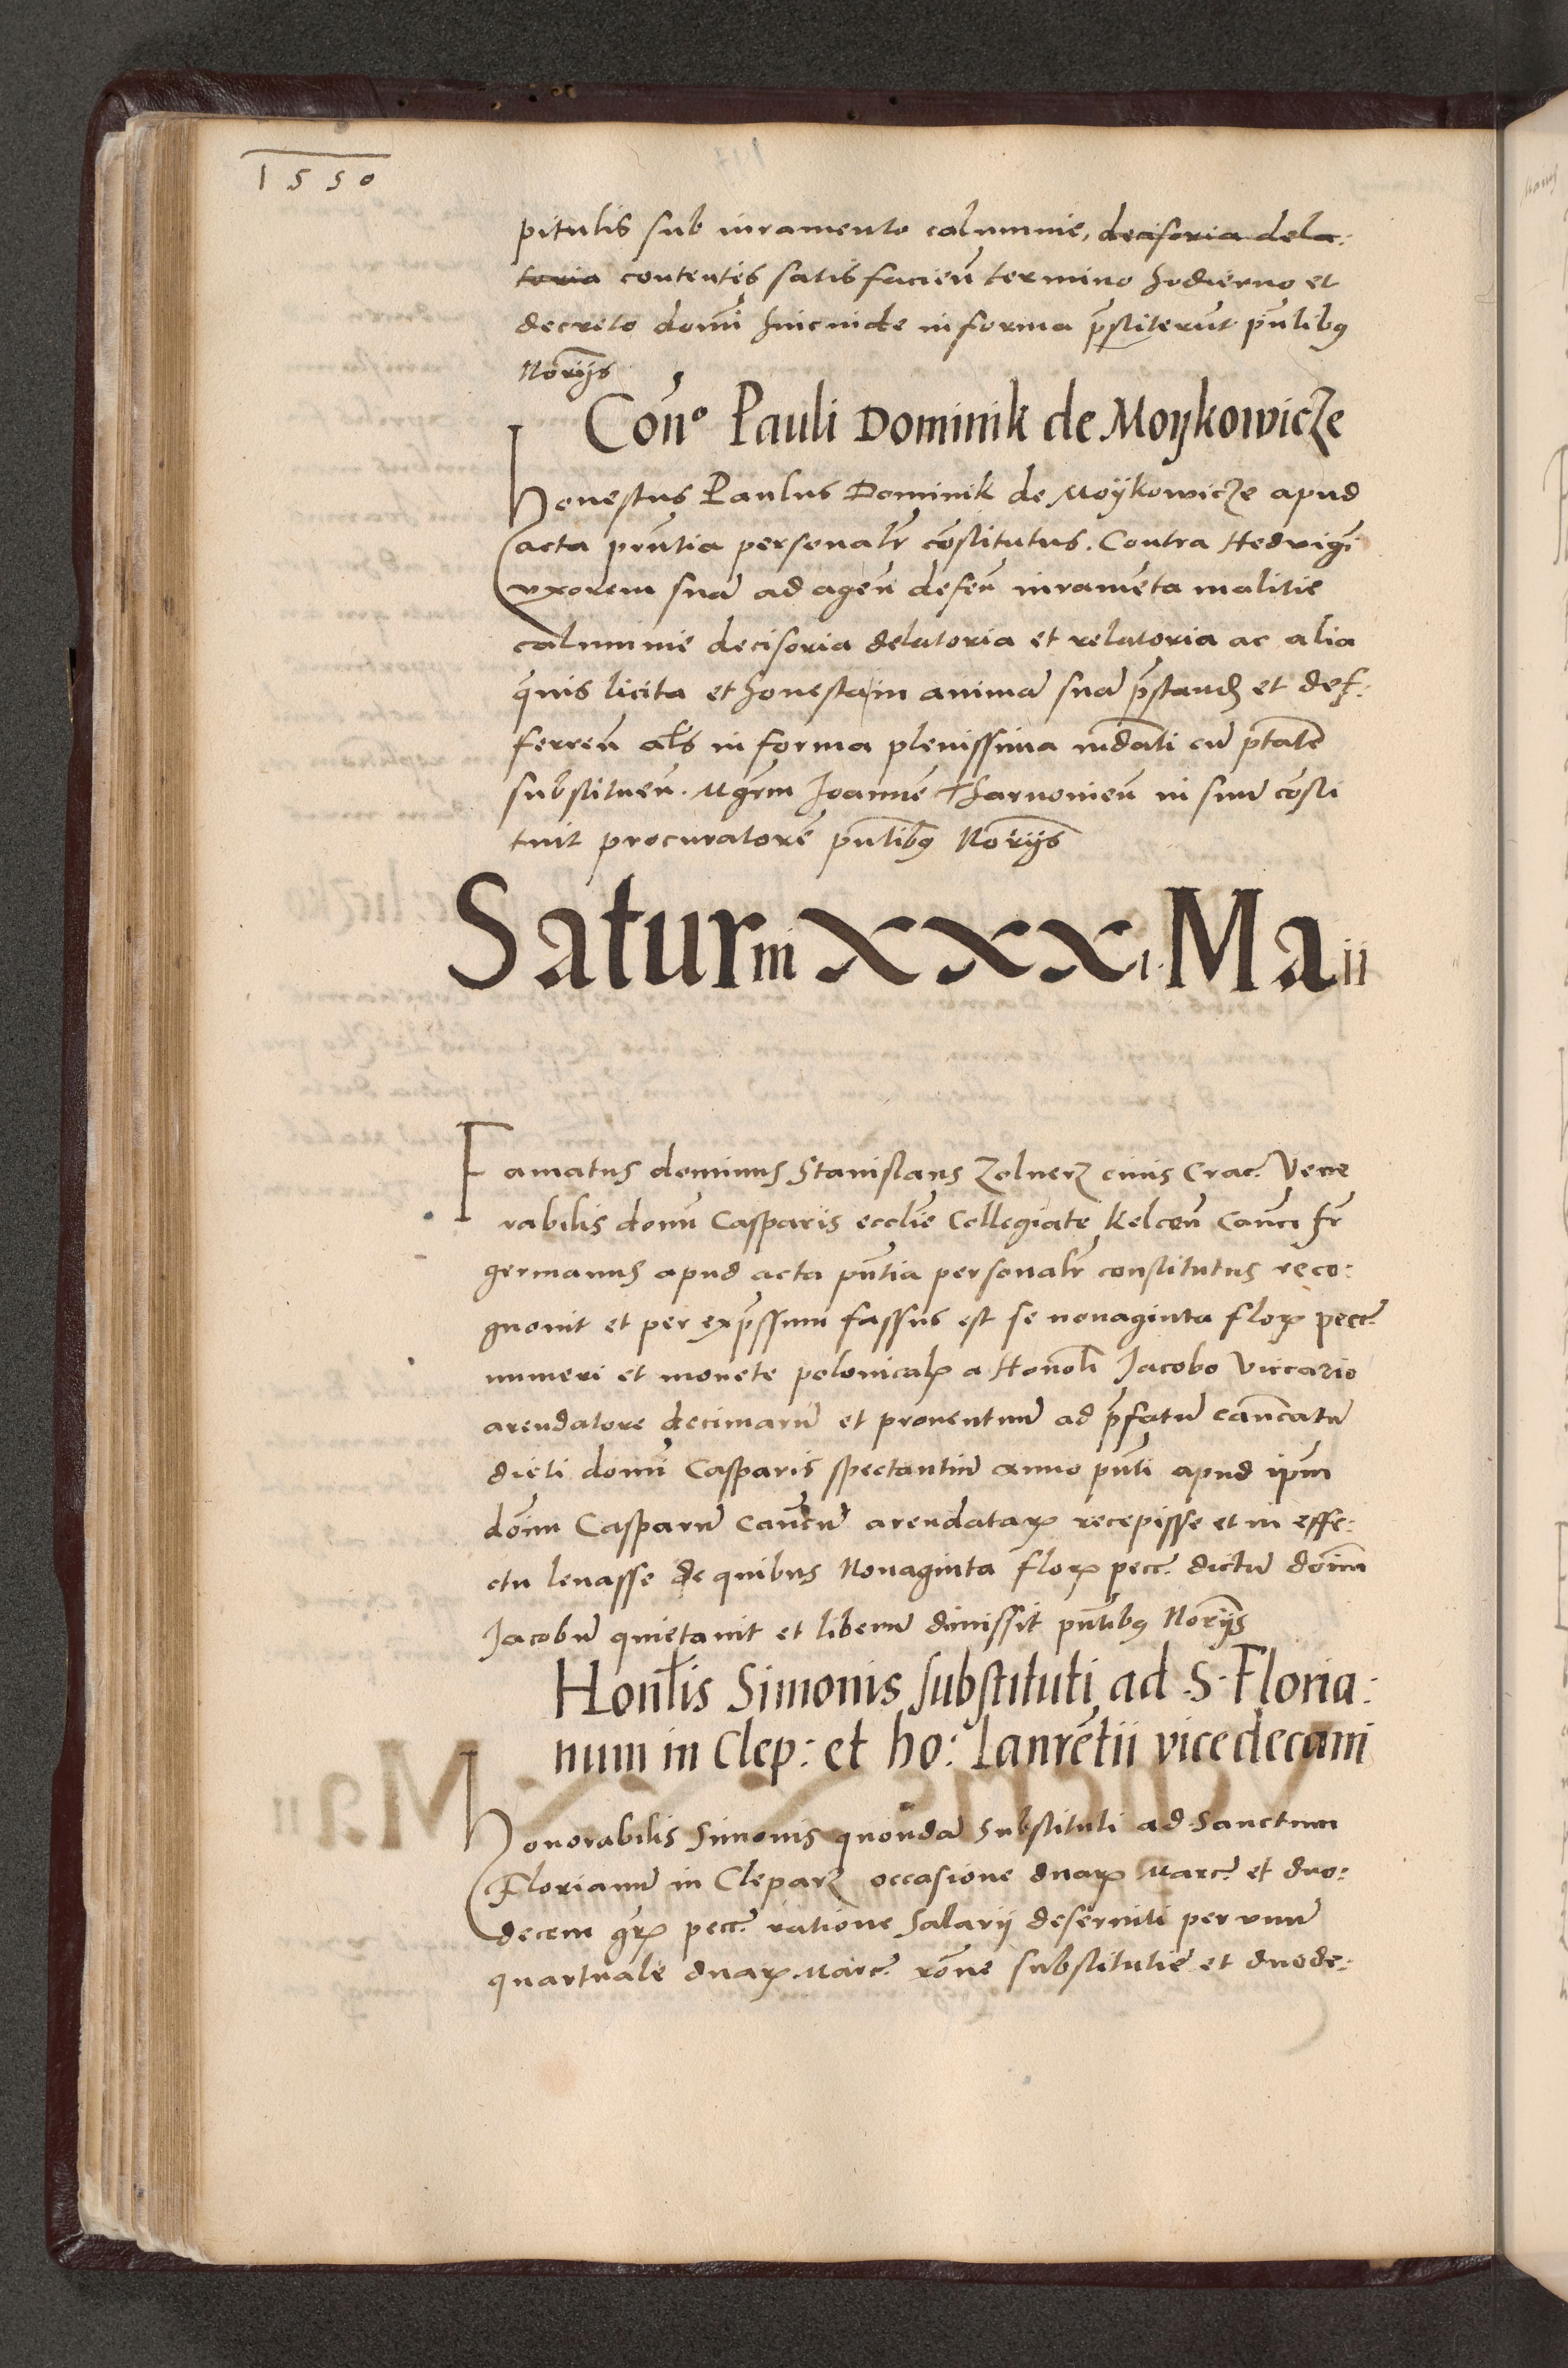 1550
pitulis sub iuramento calumnie, decisoria dela:
toria contentis satisfacień termino hodierno et
decreto domī hincinde in forma pr̄stiterūt pn̄tibꝰ
Norijs
Con̄ᵒ Pauli Dominik de Moykowicze
Honestus Paulus Dominik de Moÿkowicze apud
acta prn̄tia personalr̄ cōstitutus. Contra Hedvigē
vxorem suā ad ageń defeń iuramēta malitie
calumnie decisoria delatoria et relatoria ac alia
quis licita et honesta in animā suā pr̄standꝭ et def:
ferreń als in forma plenissima mdāti cū ptāte
substitueń. Mgrm Joannē Tharnonień in suū cōsti
tuit procuratorē pn̄tibꝰ Norijs
Saturni XXXI Maii
Famatus dominus Stanislaus Zolnerz ciuis Crac. Vene
rabilis domī Casparis ecclīe Collegiate Kelceń Canci fr̄
germanus apud acta pn̄tia personalr̄ constitutus reco:
gnouit et per expr̄ssum fassus est se nonaginta florꝝ pecc̄
numeri et monete polonicalꝝ a Honoli Jacobo Viccario
arendatore decimarū et prouentuū ad pr̄fatū canc̄atū
dicti domī Casparis spectantiū anno pn̄ti apud ipm̄
dom̄ Casparū Cancū arendatarꝝ recepisse et in effe:
ctu leuasse de quibus Nonaginta florꝝ pecc̄ dictū dom̄
Jacobū quietauit et liberū dimissit pn̄tibꝰ Norijs
Honl̄is Simonis substituti ad S. Floria:
num in Clep: et ho: Laurētii vicedecani
Honorabilis Simonis quondā substituti ad Sanctum
Florianū in Cleparz occasione duarꝝ Marc̄ et duo:
decem grꝝ pecc̄ ratione Salarij deseruiti per vnū
quartuale duarꝝ Marc̄ rōne substitutiē et duode: